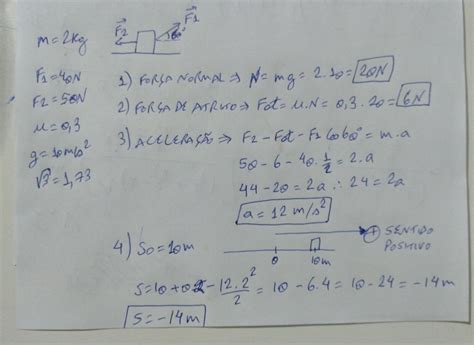 m = 2kg
F⃗2 F⃗1 60°
F1 = 40N
F2 = 50N
μ = 0,3
g = 10m/s²
√3 = 1,73
1) FORÇA NORMAL ⇒ N = mg = 2.10 = 20N
2) FORÇA DE ATRITO ⇒ Fat = μ.N = 0,3.20 = 6N
3) ACELERAÇÃO ⇒ F2 - Fat - F1 cos60° = m.a
50 - 6 - 40.1/2 = 2.a
44 - 20 = 2a ∴ 24 = 2a
a = 12 m/s²
4) S0 = 10m
0 10m
+ SENTIDO POSITIVO
S = 10 + 0.2 - 12.2²/2 = 10 - 6.4 = 10 - 24 = -14m
S = -14m